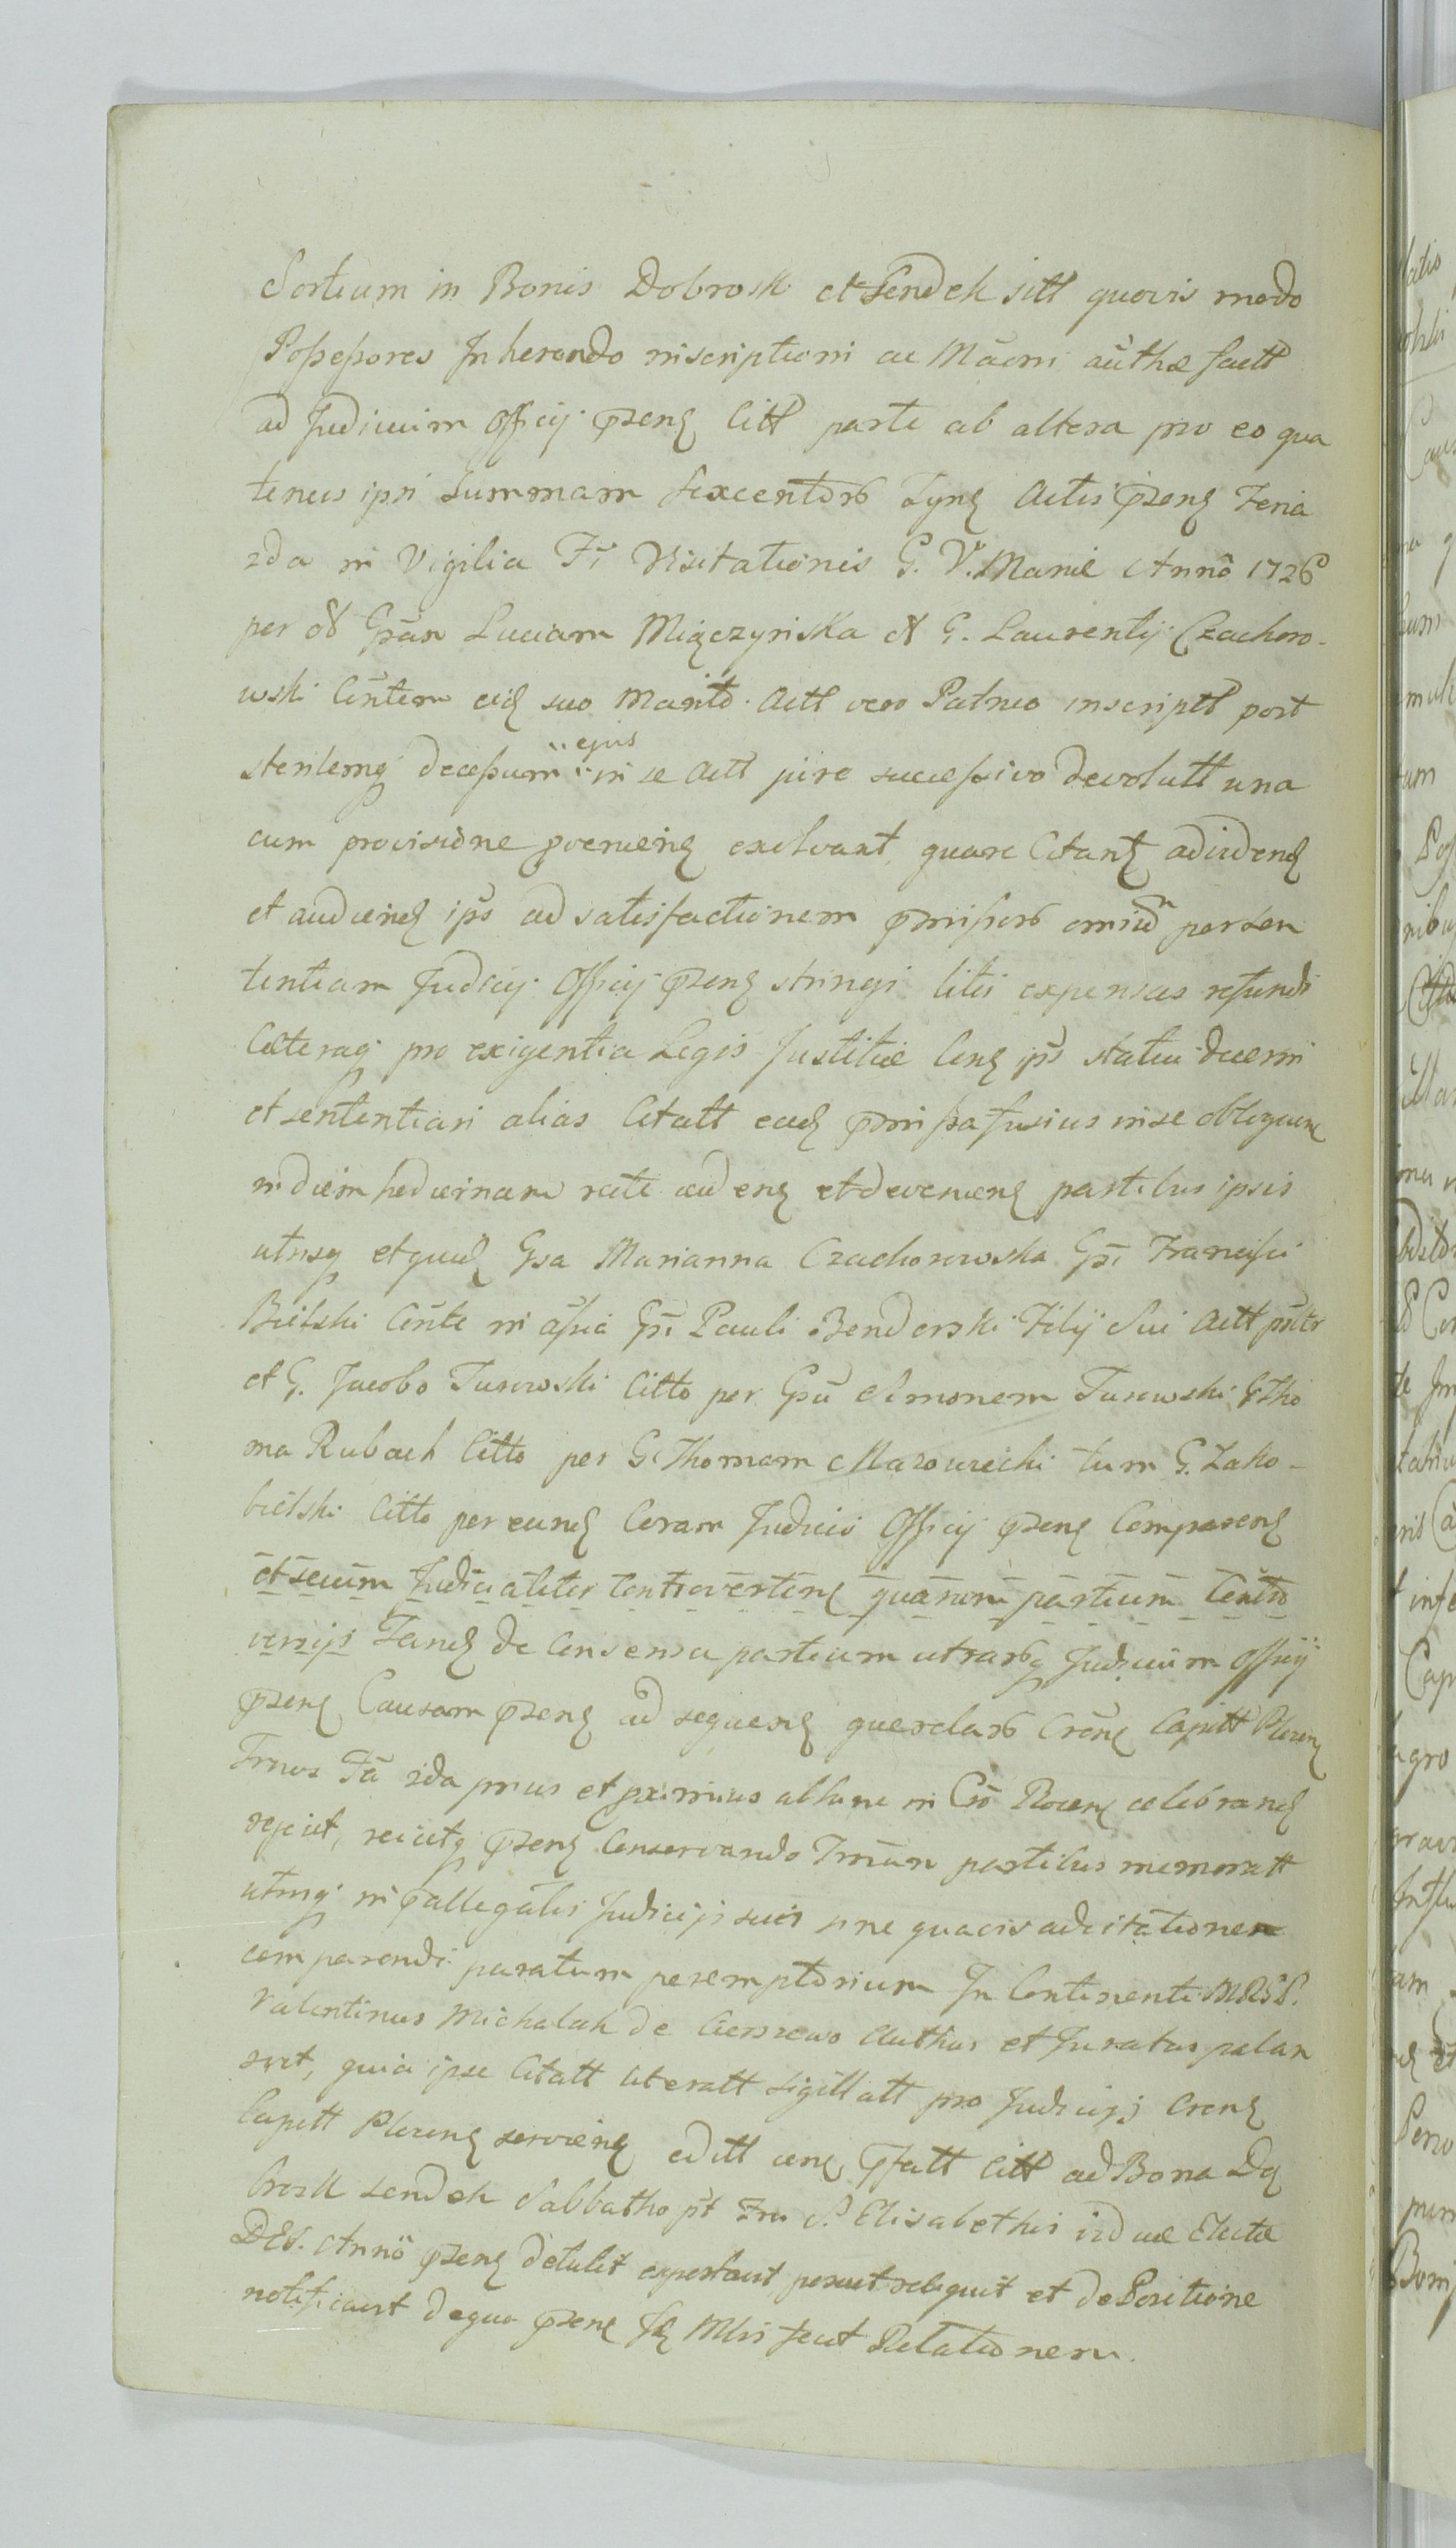 Sortium in Bonis Dobrosk et Sendek sitt quovis modo
Possessores Inherendo inscriptioni ac Mācni aūthæ factt
ad Judicium Officij p̄zenꝭ Citt parte ab altera pro eo qua
tenus ipsi Summam sexcentorꝭ Tynꝭ Actis p̄zenꝭ Feria
2da in Vigilia Fī Visitationis G. V. Mariæ Anno 1726
per olī Gsān Luciam Miączynska olī G. Laurentij Czachoro-
wski Cōntem eidꝭ suo Marito Actt vero Patruo inscriptt post
sterilemqꝫ decessum ejus in se Actt jure successivo devolutt una
cum provisione proveniēnꝭ exolvant, quare Citantꝭ ad vidēndꝭ
et audiēndꝭ ipsōs ad satisfactionem p̄missorꝭ omnium per sen
tentiam Judicij Officij p̄zenꝭ stringi litis expensas refundi
Cæteraqꝫ pro exigentia Legis Justitiæ Cenꝭ ips statui decerni
et sententiari alias Citatt eadꝭ p̄missa fusius in se obloquēn
in diem hodiernam rite cadenꝭ et devenienꝭ partibus ipsis
utrisqꝫ et quidꝭ Gsa Marianna Czachorowska Gsī Francisci
Bielski Cōnte in assīa Gsī Pauli Benderski Filij Sui Actt pnltr
et G. Jacobo Turowski Citto per Gsū Simonem Turowski G. Tho
ma Rubach Citto per G. Thomam Mazowiecki tum G. Zako-
bielski Citto per eundꝭ Coram Judicio Officij p̄zenꝭ Comparenꝭ
et secum Judicialiter Controvertenꝭ quarum partium Contro
versijs Tandꝭ de Consensu partium utrarꝭqꝫ Judicium Officij
p̄zenꝭ Causam p̄zenꝭ ad sequenꝭ querelarꝭ Crēnꝭ Capitt Plocenꝭ
Trnos Fā 2da prius et proximius abhinc in Crō Plocenꝭ celebrandꝭ
rejicit, reiicitqꝫ p̄zenꝭ Conservando Trmūm partibus memoratt
utrisqꝫ in p̄allegatis Judicijs suis sine quavis adcitatione
comparendi paratum peremptorium In Continenti MRSP.
Valentinus Michalak de Cierszewo Authus et Juratus palam
rect, quia ipse Citatt literatt sigillatt pro Judicijs Crenꝭ
Capitt Plocenꝭ serviēnꝭ editt cenꝭ p̄fatt Citt ad Bona Do
brosk Sendek Sabbatho pt Fm S. Elisabethis viduæ Electæ
DEI. Anno p̄zenꝭ detulit exportavit posuit reliquit et de Positione
notificavit de quo p̄zenꝭ sꝭ Mlis fecit Relationem.